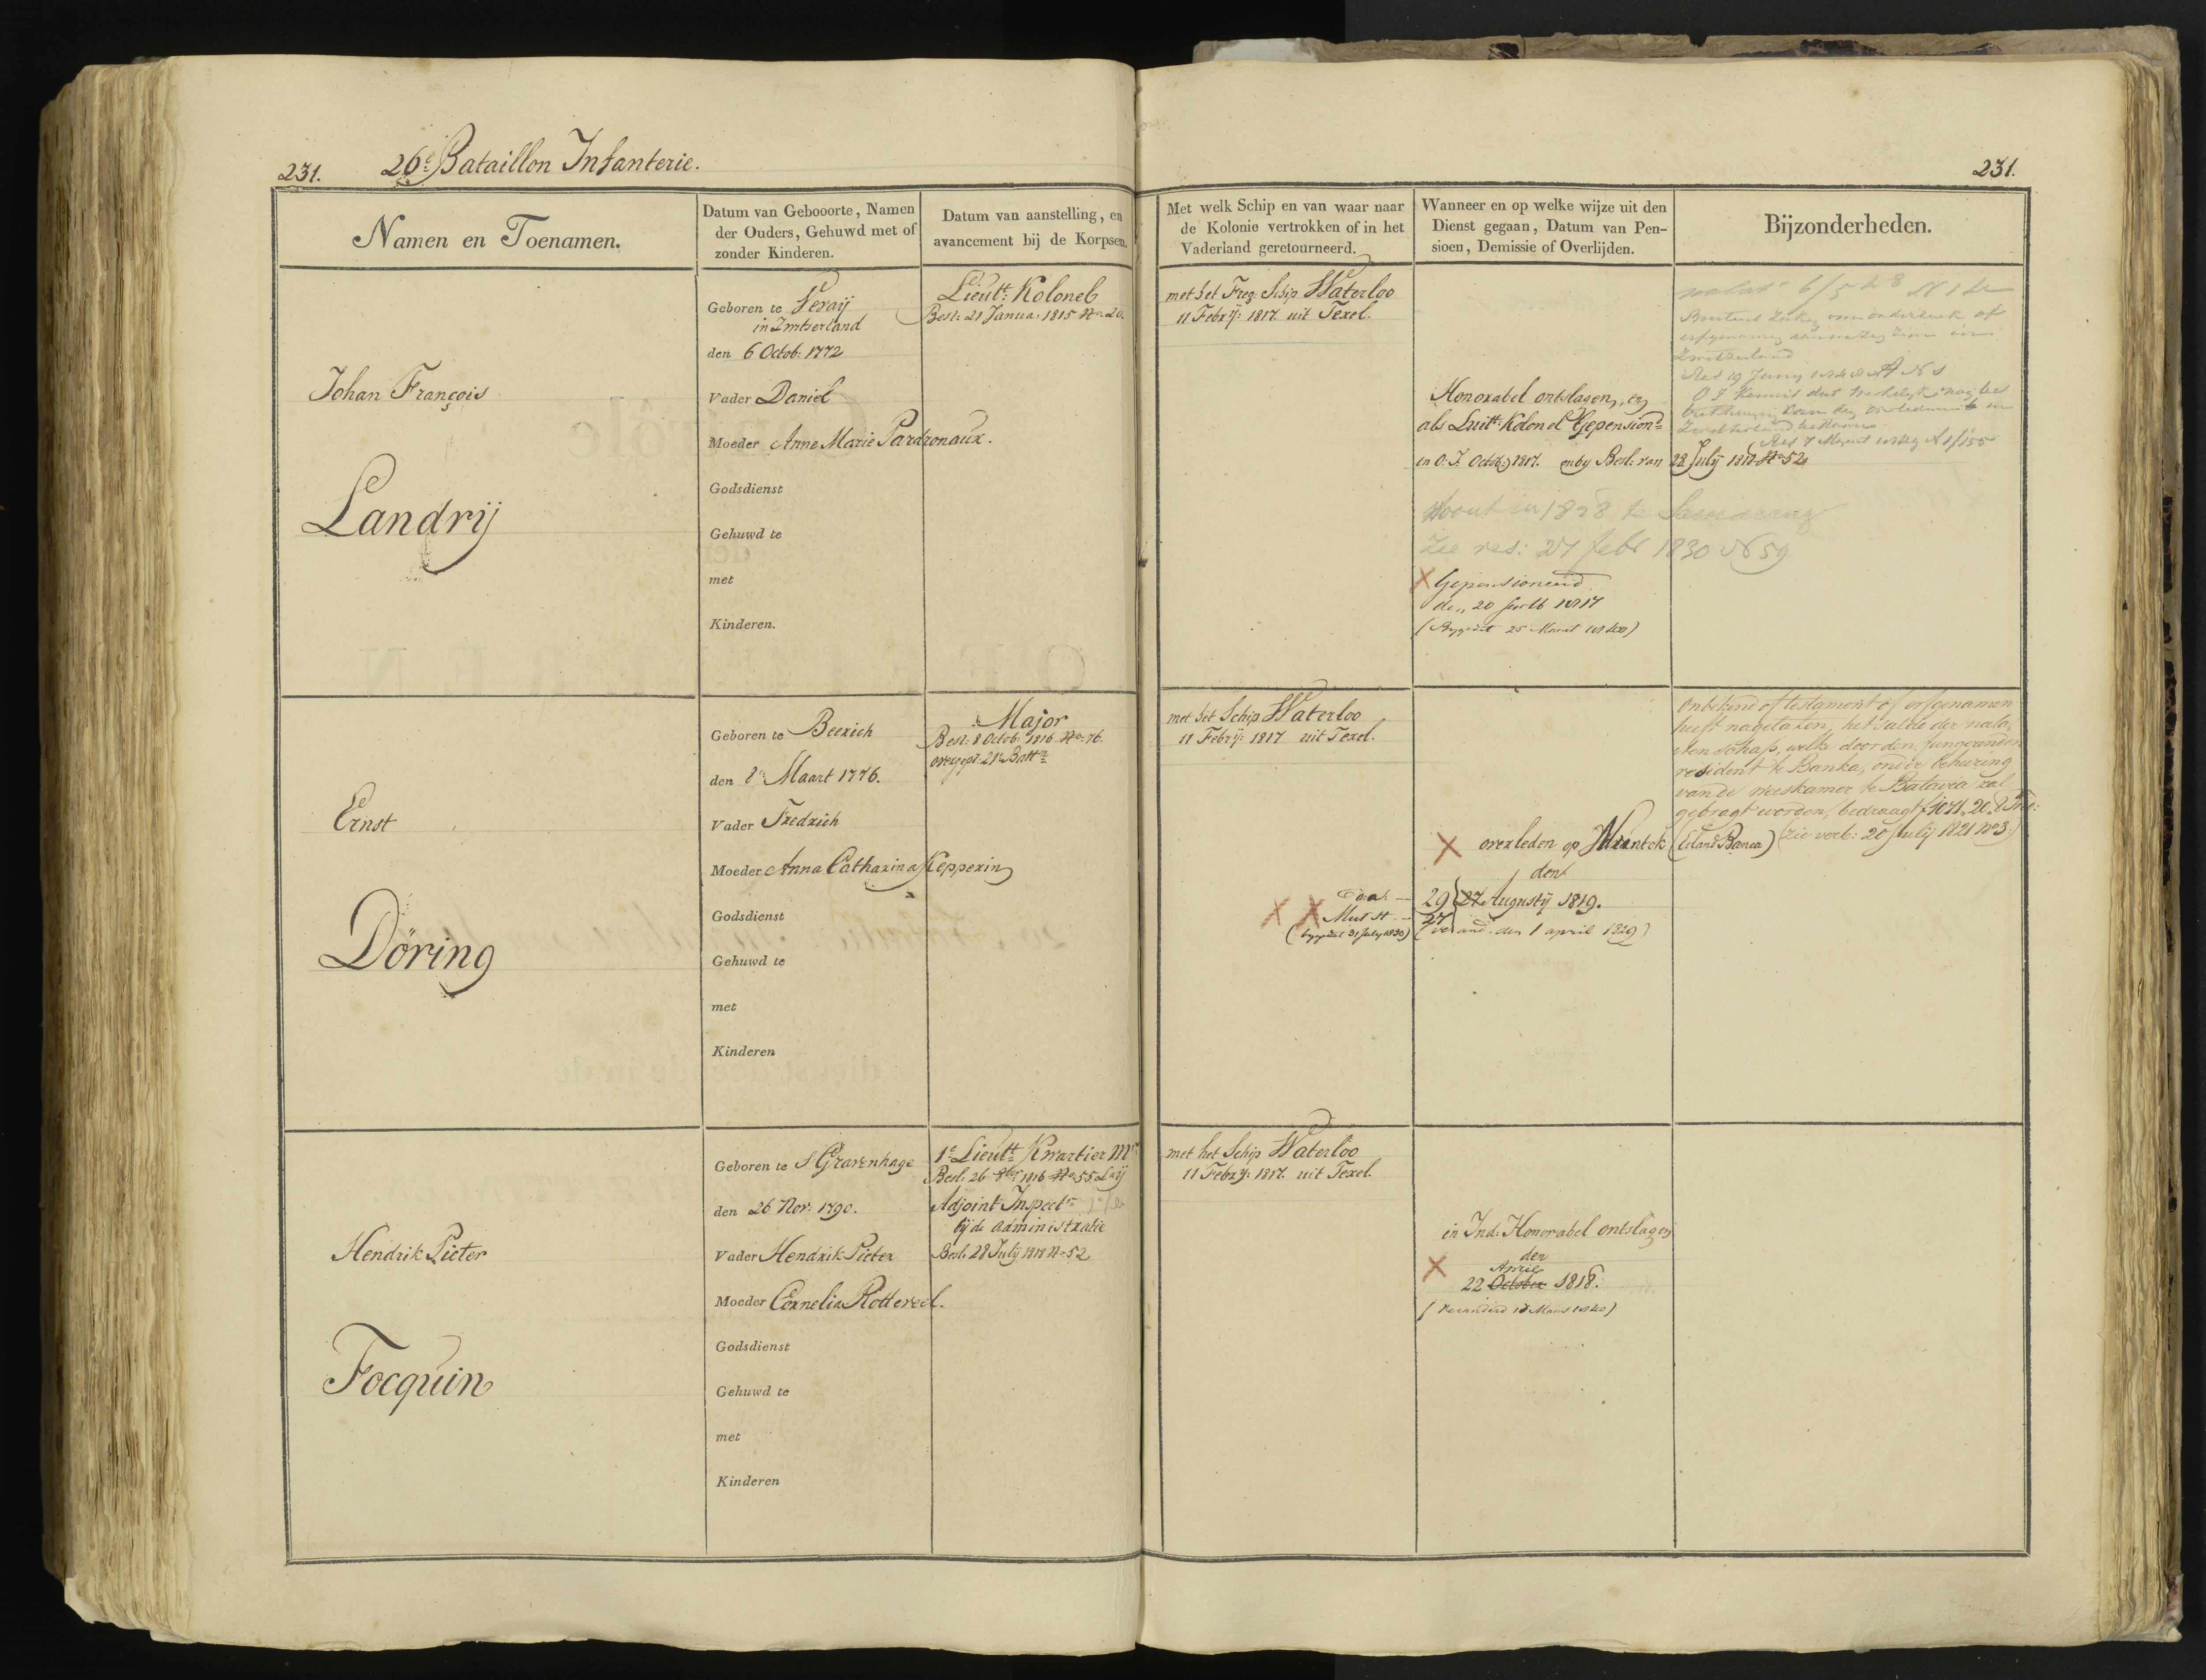 231. 26e Bataillon Infanterie.
231.
Namen en Toenamen.
Datum van Gebooorte, Namen
der Ouders, Gehuwd met of
zonder Kinderen.
Datum van aanstelling, en
avancement bij de Korpsen.
Met welk Schip en van waar naar
de Kolonie vertrokken of in het
Vaderland geretourneerd.
Wanneer en op welke wijze uit den
Dienst gegaan, Datum van Pen-
sioen, Demissie of Overlijden.
Bijzonderheden.
Johan François
Landrij
Geboren te
in Zwitserland
den 6 Octob: 1772
Vader Daniel
Moeder Anne Marie Pardronaux.
Godsdienst
Gehuwd te
met
Kinderen.
Lieutt: Kolonel
Besl: 21 Janua: 1815 No. 20.
met het Freg: Schip Waterloo
11 Febrij: 1817 uit Texel.
Honorabel ontslagen, en
als Luitt: Kolonel Gepensiond
in O: I. Octob 1817. en by Besl: van 28 July 1818 No 52
Woont in 1828 te Samarang
Zie res: 27 febr 1830 N 59
X Gepensioneerd
den 20 1817
Zwitserland
Res 19 Juny
Ernst
Döring
Geboren te Beerich
den 8e Maart 1776.
Vader Fredrich
Moeder Anna Catharina Kepperin
Godsdienst
Gehuwd te
met
Kinderen
Major
Besl: 8 Octob: 1816 No. 76.
overgepl: 21e Battn
met het Schip Waterloo
11 Febrij: 1817 uit Texel.
X overleden op Muntok (Eiland Banca)
den
29 27 Augustij 1819.
27
(verand. den 1 april 1829)
X X Mut st
31 July 1830)
Onbekend of testament of erfgenamen
heeft nagelaten, het saldo der nala-
tenschap, welke door den fungerenden
resident te Banka, onder beheering
van de weeskamer te Batavia zal
gebragt worden, bedraagt f 1071, 20
(zie verb: 20 Julij 1821 No 3.)
Hendrik Pieter
Focquin
Geboren te s Gravenhage
den 26 Nov: 1790.
Vader Hendrik Pieter
Moeder Cornelia Rottereel.
Godsdienst
Gehuwd te
met
Kinderen
1e Lieutt: Kwartier Mr
Besl: 26 1816 No 55
Adjoint Inspectr
bij de administratie
Besl: 28 July 1818 No 52
met het Schip Waterloo
11 Febrij: 1817. uit Texel.
in Ind: Honorabel ontslagen
den
April
X 22 October 1818.
(Veranderd 18 Maart 1840)